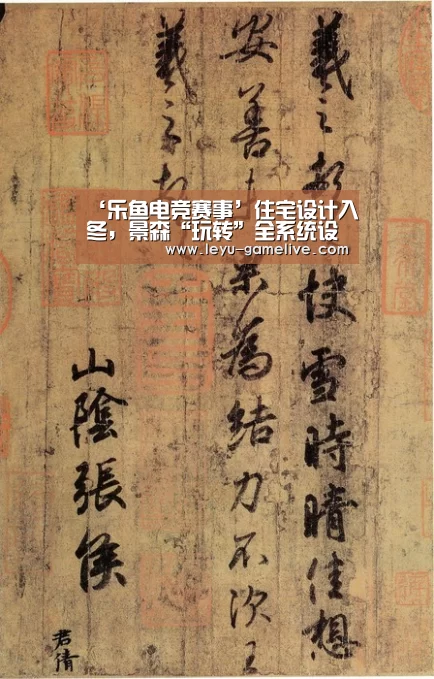 羲之頓快雪時晴佳想
安善未果為結力不次王
羲之頓
山陰張侯
君倩
‘乐鱼电竞赛事’住宅设计入
冬，景森“玩转”全系统设
www.leyu-gamelive.com